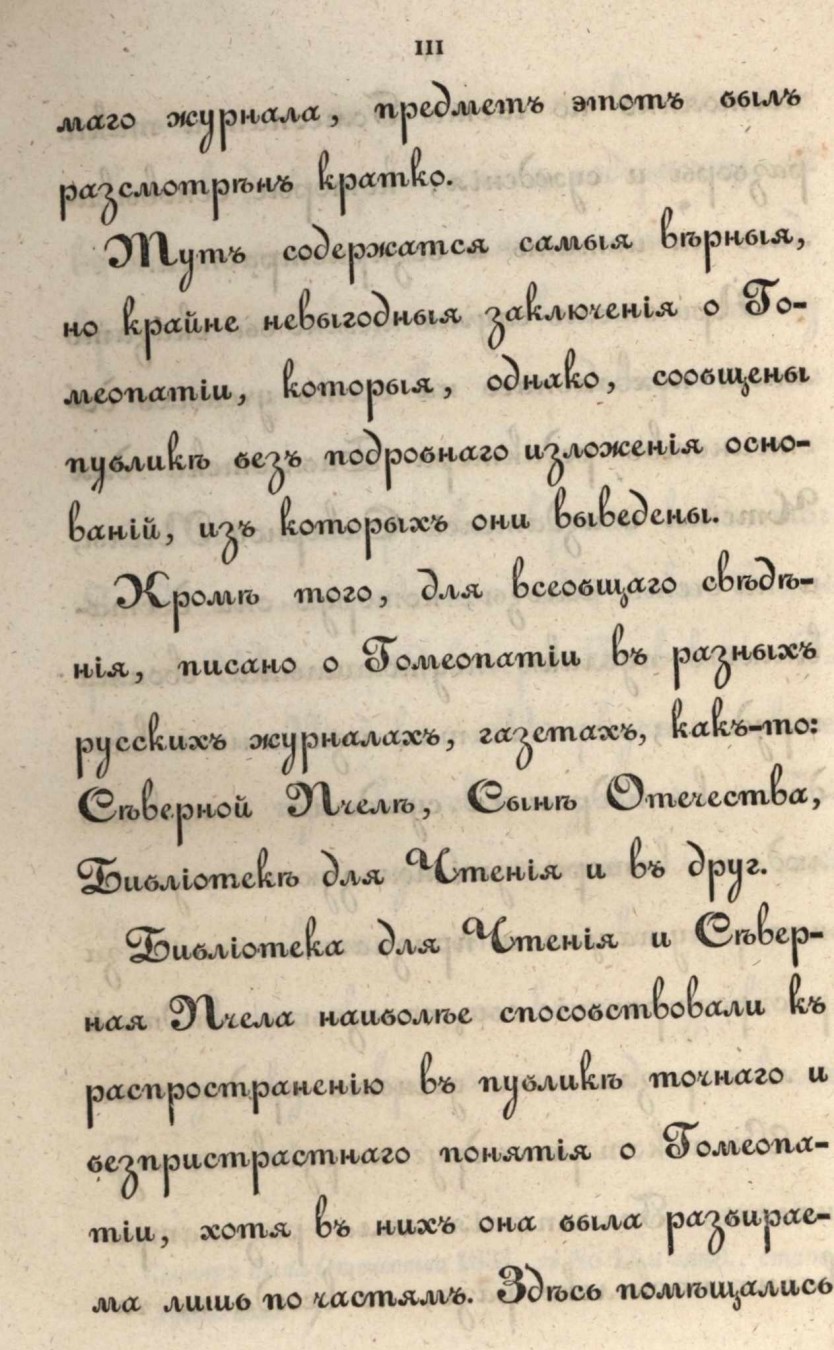 III
маго журнала, предметъ этотъ былъ
разсмотрѣнъ кратко.
Тутъ содержатся самыя вѣрныя,
но крайне невыгодныя заключенія о Го-
меопатіи, которыя, однако, сообщены
публикѣ безъ подробнаго изложенія осно-
ваній, изъ которыхъ они выведены.
Кромѣ того, для всеобщаго свѣдѣ-
нія, писано о Гомеопатіи въ разныхъ
русскихъ журналахъ, газетахъ, какъ-то:
Сѣверной Пчелѣ, Сынѣ Отечества,
Библіотекѣ для Чтенія и въ друг.
Библіотека для Чтенія и Сѣвер-
ная Пчела наиболѣе способствовали къ
распространенію въ публикѣ точнаго и
безпристрастнаго понятія о Гомеопа-
тіи, хотя въ нихъ она была разбирае-
ма лишь по частямъ. Здѣсь помѣщались